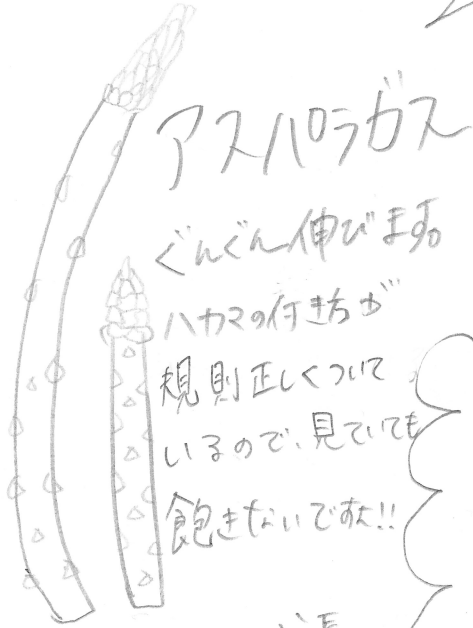 アスパラガス
ぐんぐん伸びます。
ハカマの付き方が
規則正しくついて
いるので、見ていても
飽きないですね!!